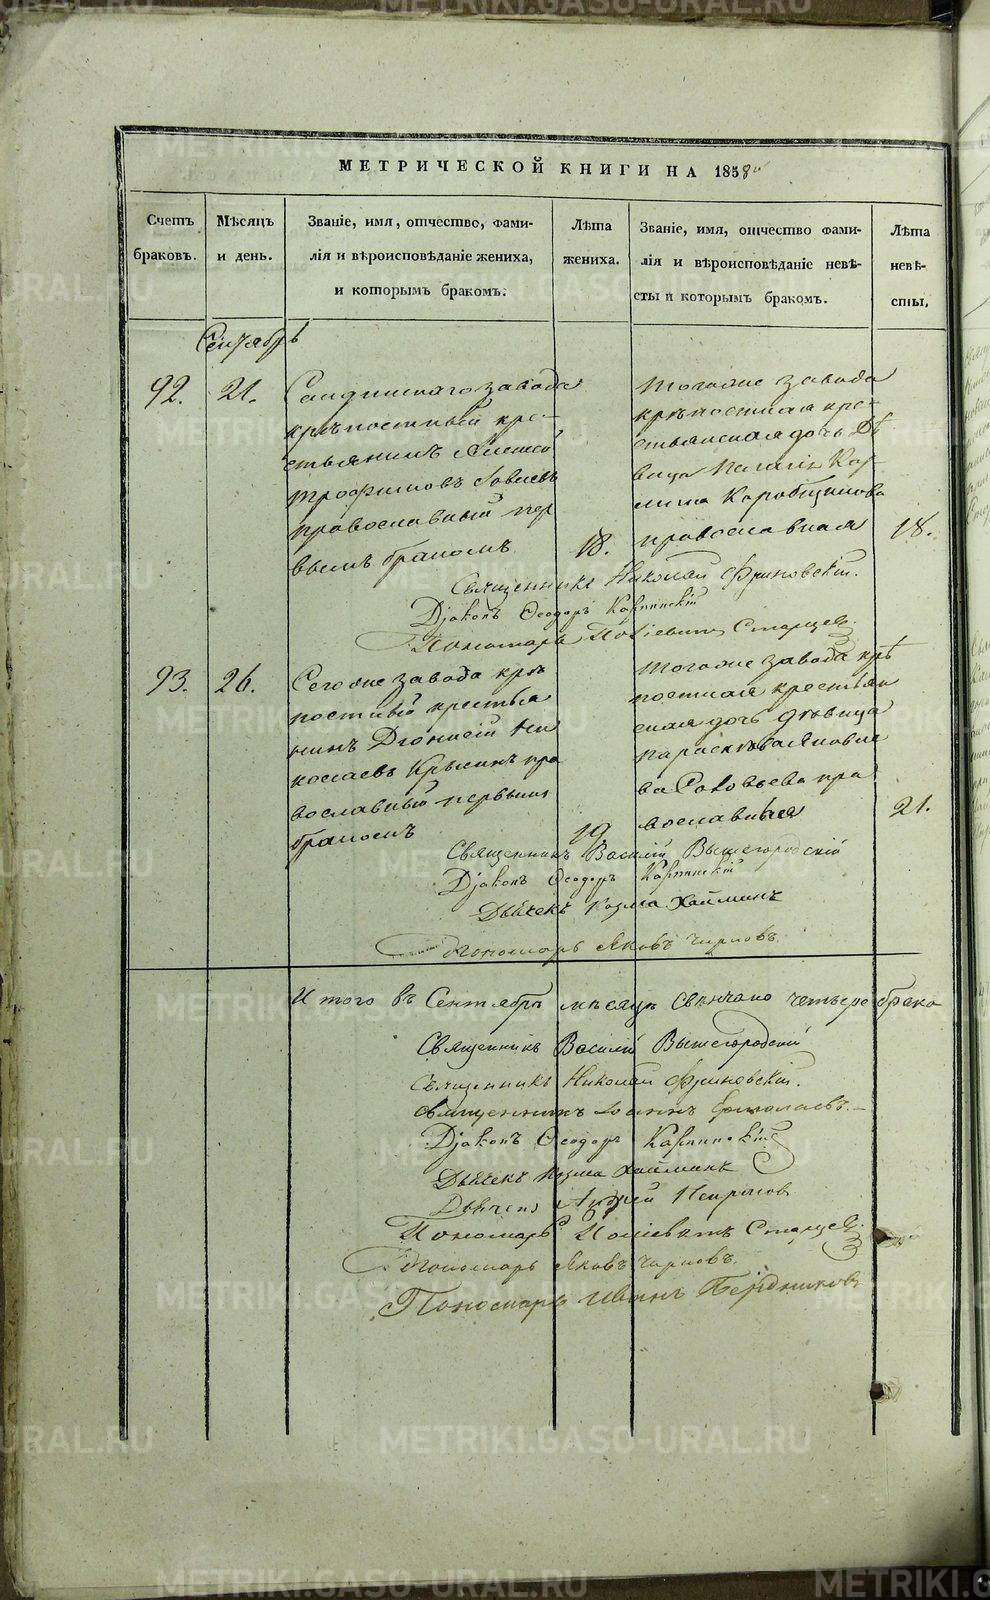 МЕТРИЧЕСКОЙ КНИГИ НА 1858
Счетъ браковъ.
Мѣсяцъ и день.
Званіе, имя, отчество, фами-
лія и вѣроисповѣданіе жениха,
и которымъ бракомъ.
Лѣта жениха.
Званіе, имя, отчество фами-
лія и вѣроисповѣданіе невѣ-
сты и которымъ бракомъ.
Лѣта невѣ-
сты.
Сентябрь
92.
21.
завода
крѣпостный кре-
стьянинъ
Трофимовъ
православный пер
вымъ бракомъ
18.
Тогоже завода
крѣпостная кре-
стьянская дочь дѣ
вица
православная
18.
Священникъ Николай Флоновскій.
Діаконъ Ѳеодоръ Карпинскій
Пономарь Старцев
93.
26.
Сегоже завода крѣ
постный крестья
нинъ Діонисій Ни
колаевъ пра
вославный первымъ
бракомъ
19
Тогоже завода крѣ
постная крестьян
ская дочь дѣвица
Параскева Яковле
ва Соловьева пра
вославная
21.
Священникъ Василій Вышегородскій
Діаконъ Ѳеодоръ Карпинскій
Дьячекъ Козма
Пономарь Яковъ Чирновъ
Итого въ Сентябрѣ мѣсяцѣ свѣнчано четыре брака
Священникъ Василій Вышегородскій
Священникъ Николай Флоновскій.
Священникъ Іоаннъ Ермолаевъ.
Діаконъ Ѳеодоръ Карпинскій
Дьячекъ Козма
Дьячекъ Андрей
Пономарь Старцев.
Пономарь Яковъ Чирновъ.
Пономарь Иванъ Бердниковъ
METRIKI.GASO-URAL.RU